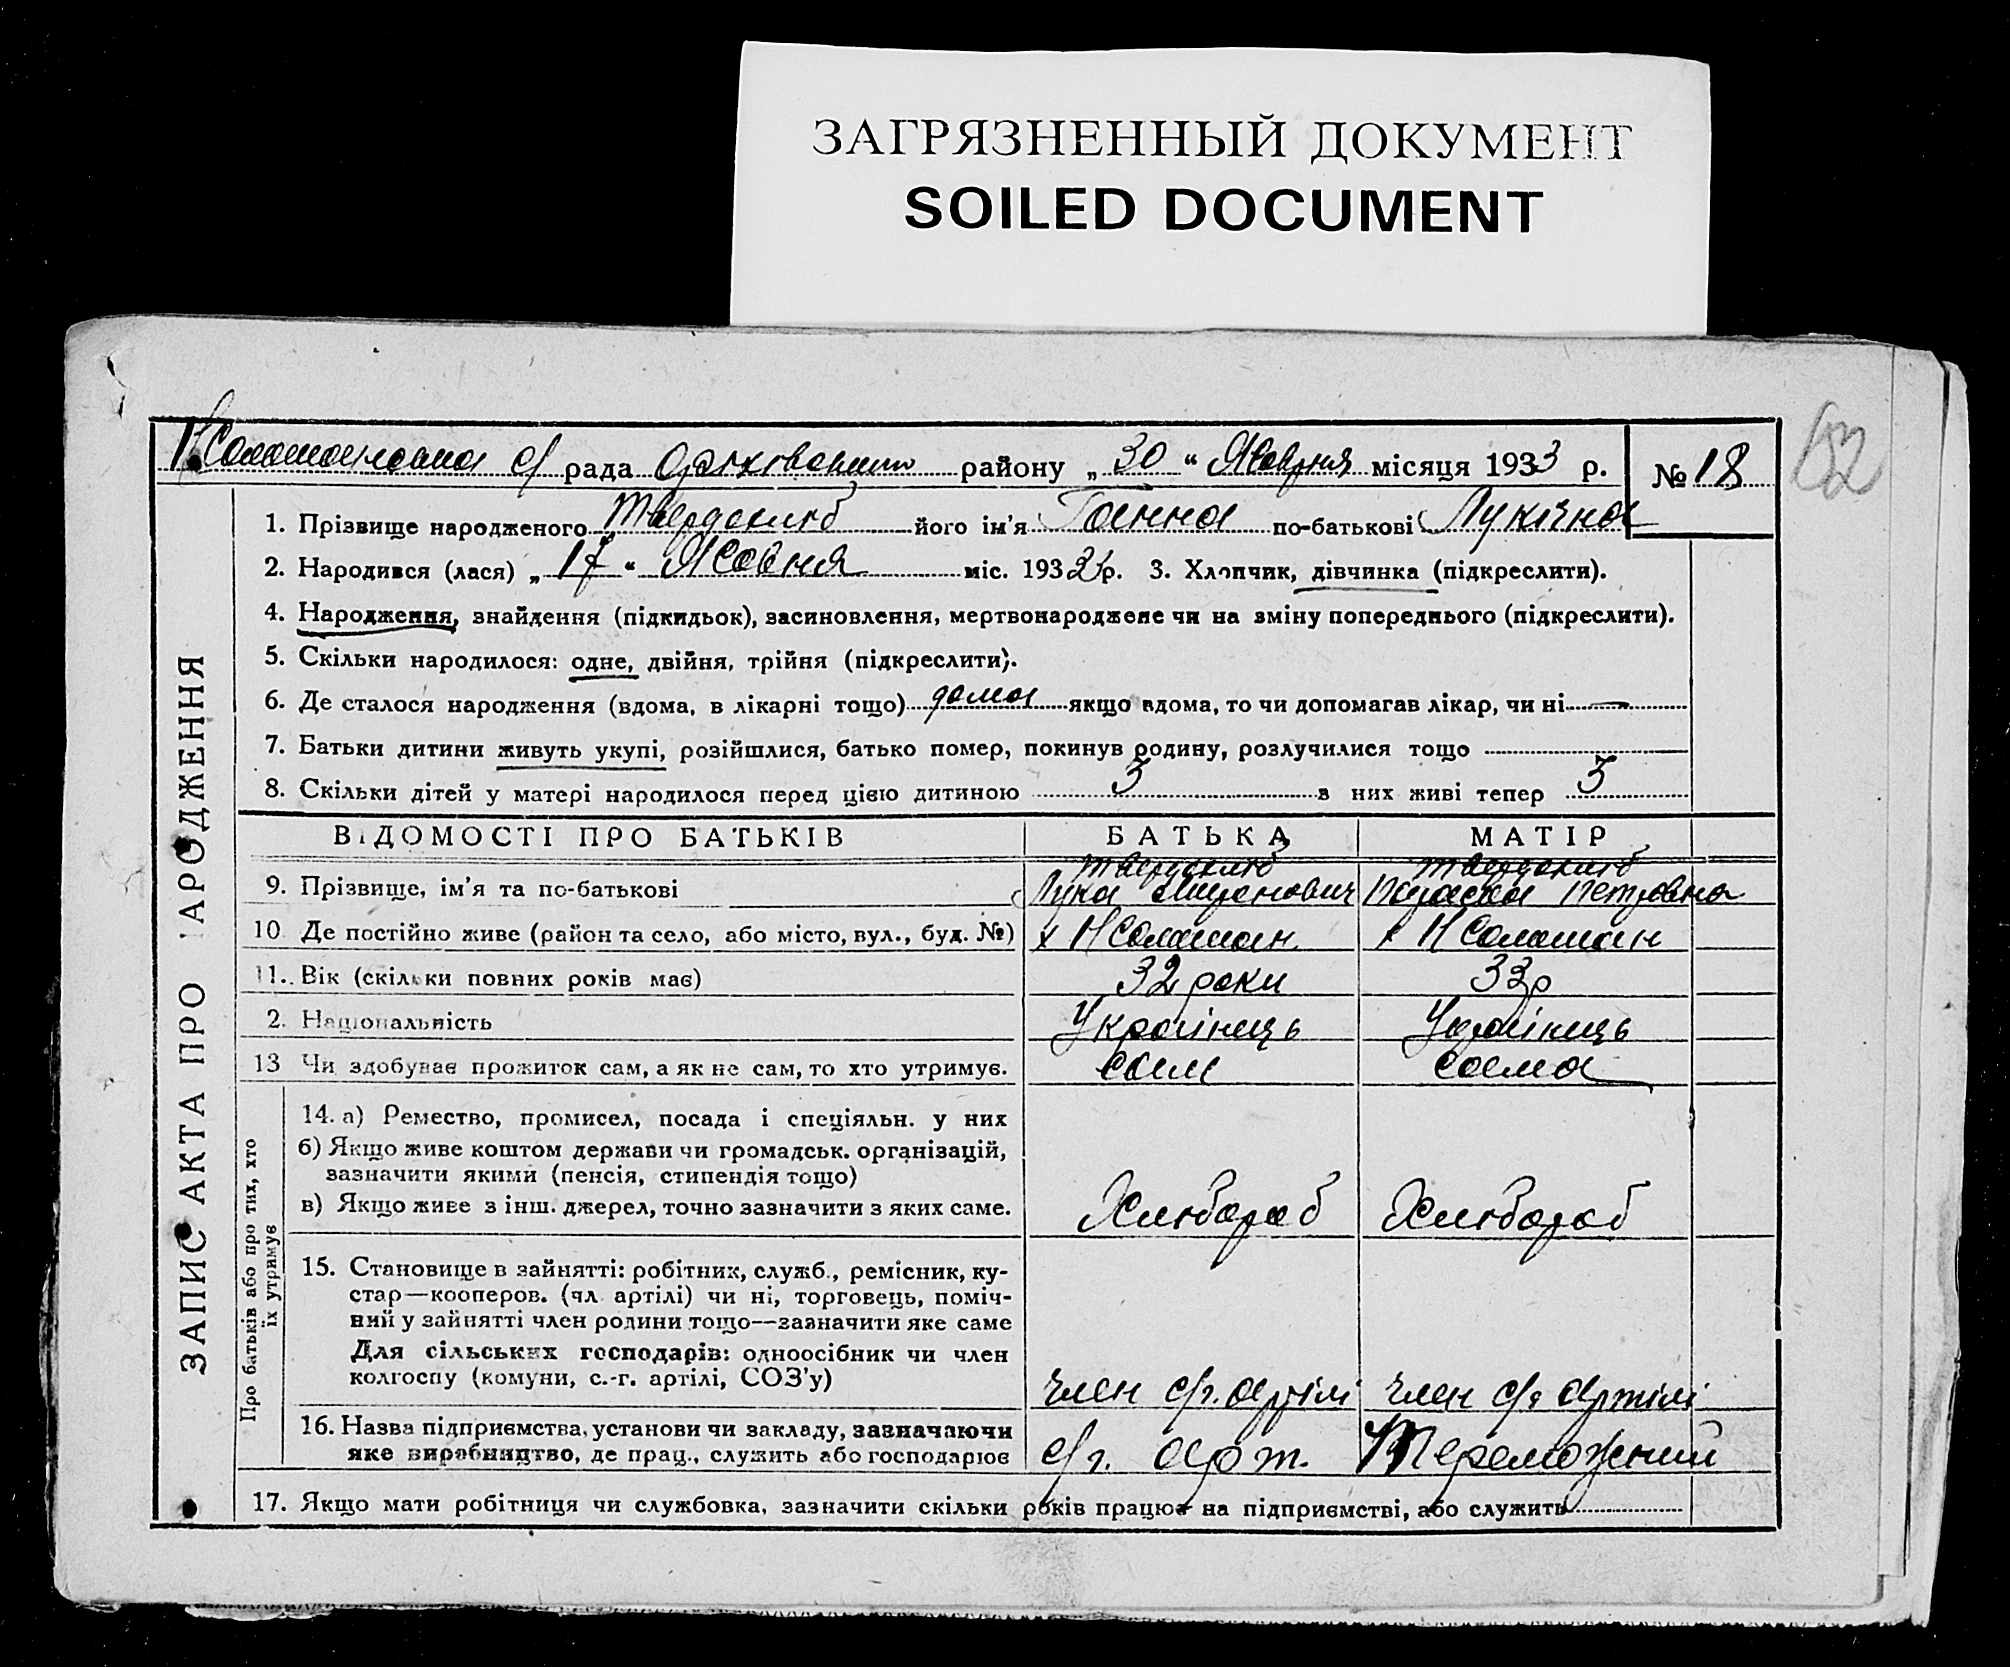 ЗАГРЯЗНЕННЫЙ ДОКУМЕНТ
SOILED DOCUMENT
52
рада району „ 30 “ місяця 1933 р. № 18
1. Прізвище народженого Твердохліб його ім'я Ганна по-батькові Лукінна
2. Народився (лася) „ 17 “ Жовтня міс. 1933 р. 3. Хлопчик, дівчинка (підкреслити).
4. Народження, знайдення (підкидьок), засиновлення, мертвонароджене чи на зміну попереднього (підкреслити).
5. Скільки народилося: одне, двійня, трійня (підкреслити).
6. Де сталося народження (вдома, в лікарні тощо) дома якщо вдома, то чи допомагав лікар, чи ні —
7. Батьки дитини живуть укупі, розійшлися, батько помер, покинув родину, розлучилися тощо
8. Скільки дітей у матері народилося перед цією дитиною 3 з них живі тепер 3
ЗАПИС АКТА ПРО НАРОДЖЕННЯ
ВІДОМОСТІ ПРО БАТЬКІВ БАТЬКА МАТІР
Твердохліб Твердохліб
9. Прізвище, ім'я та по-батькові Лука Петровна
10. Де постійно живе (район та село, або місто, вул., буд. №)
11. Вік (скільки повних років має) 32 роки 33 р
2. Національність Українець Українець
13 Чи здобуває прожиток сам, а як не сам, то хто утримує. сам сама
Про батьків або про тих, хто
їх утримує
14. а) Ремество, промисел, посада і спеціяльн. у них
б) Якщо живе коштом держави чи громадськ. організацій,
зазначити якими (пенсія, стипендія тощо)
в) Якщо живе з інш. джерел, точно зазначити з яких саме. Хлібороб Хлібороб
15. Становище в зайнятті: робітник, служб., ремісник, ку-
стар—кооперов. (чл. артілі) чи ні, торговець, поміч-
ний у зайнятті член родини тощо—зазначити яке саме
Для сільських господарів: одноосібник чи член
колгоспу (комуни, с.-г. артілі, СОЗ'у) член с/г. артілі член с/г артілі
16. Назва підприємства, установи чи закладу, зазначаючи
яке виробництво, де прац., служить або господарює с/г. арт.
17. Якщо мати робітниця чи службовка, зазначити скільки років працює на підприємстві, або служить